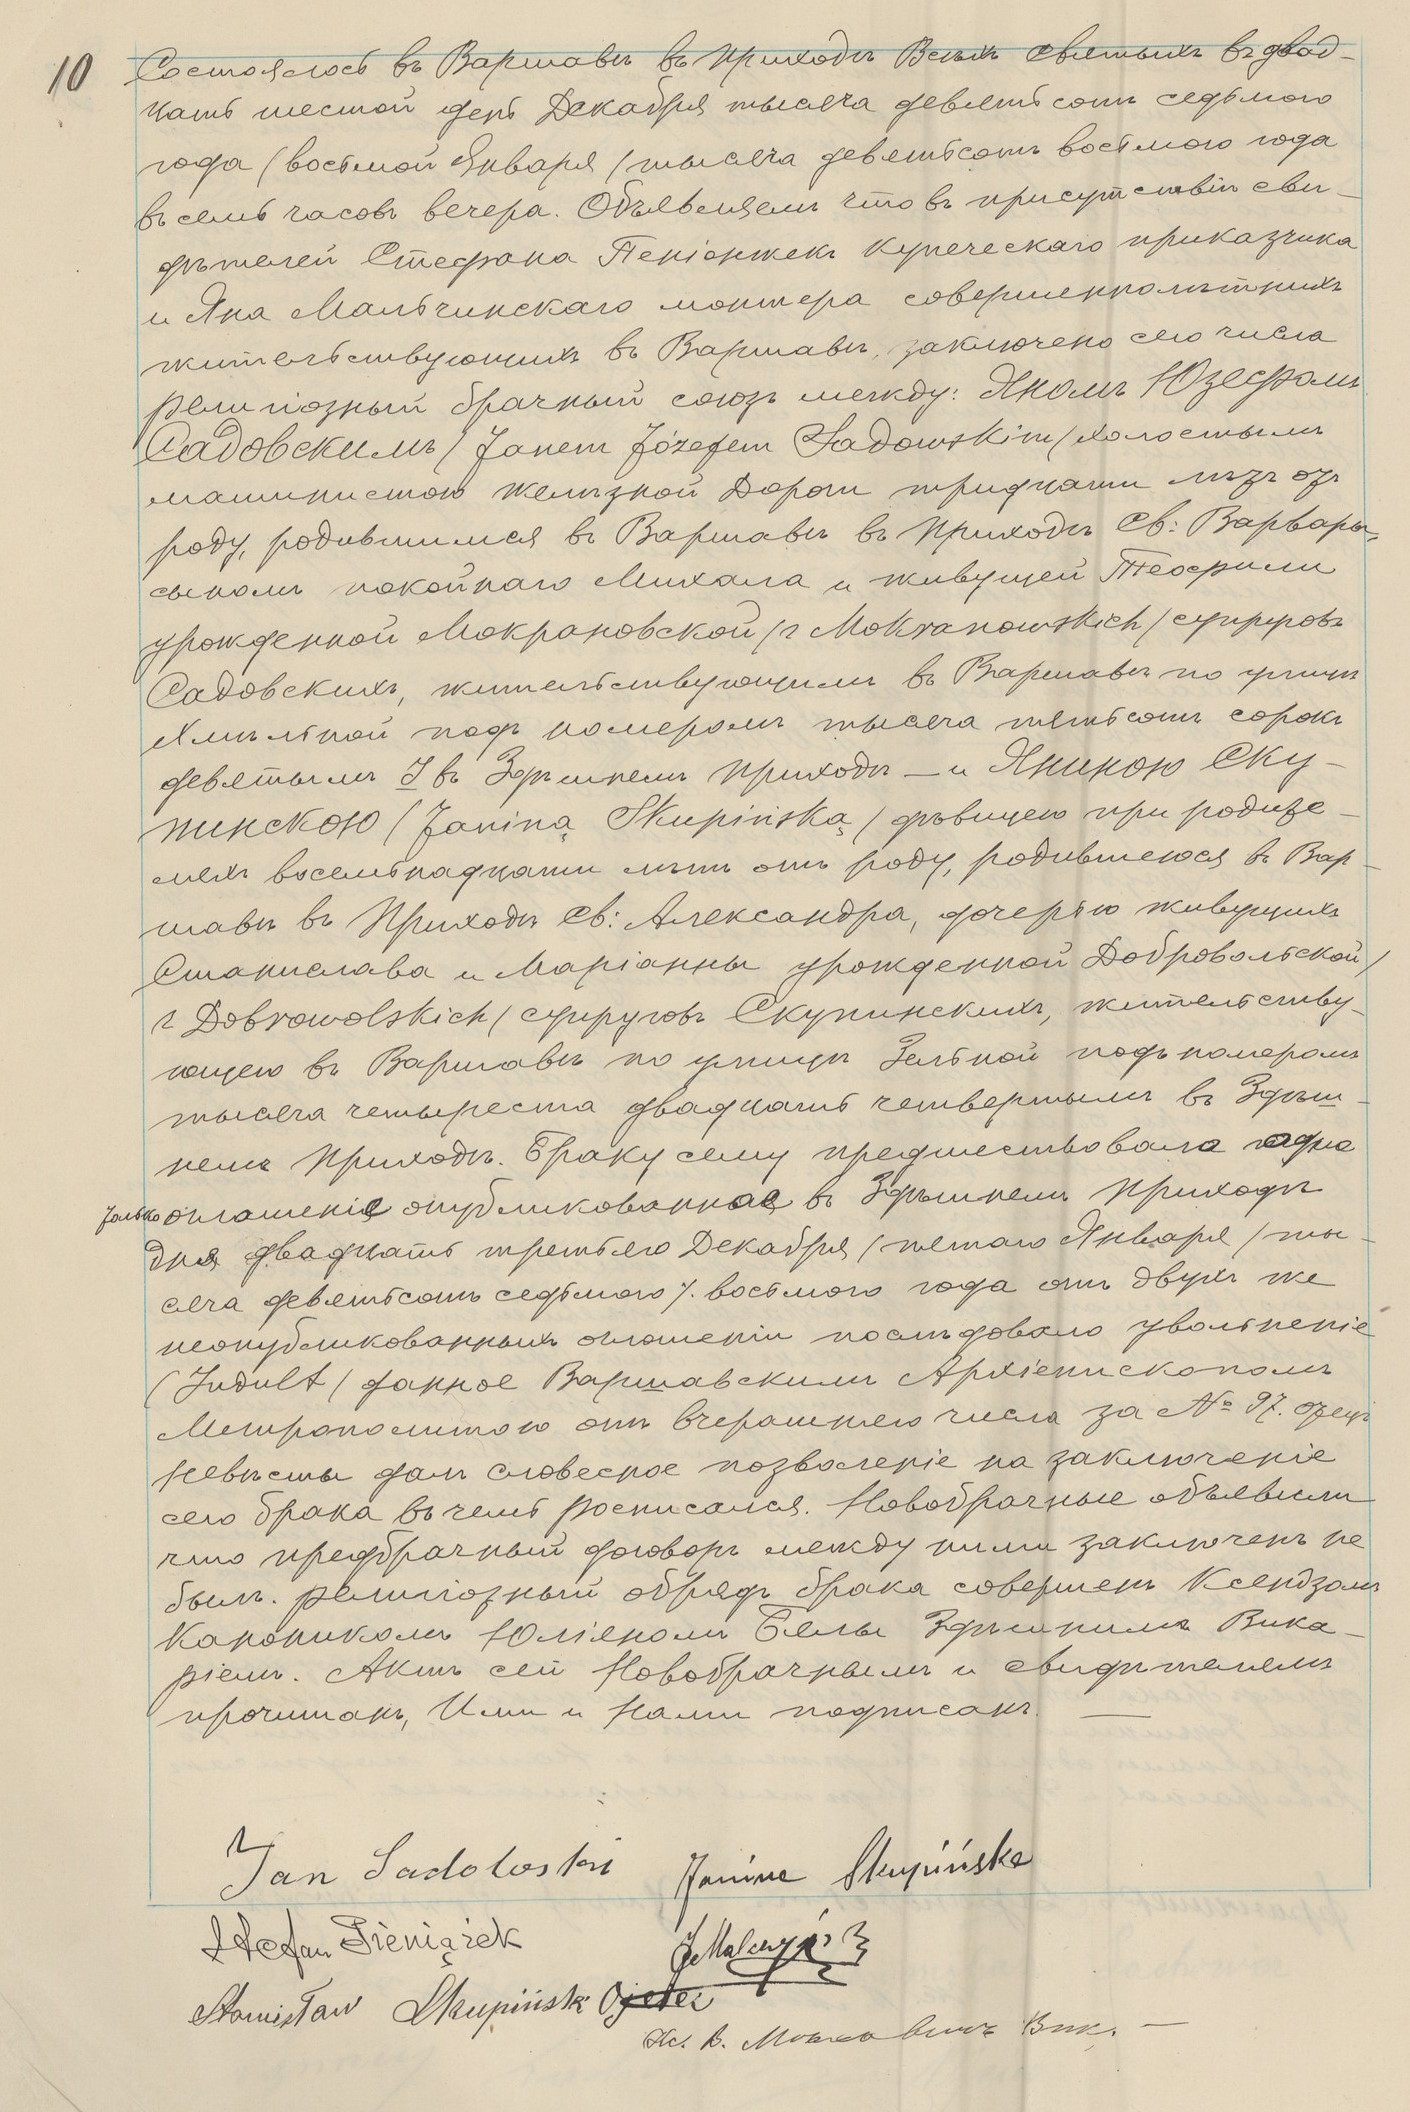 10
Состоялось въ Варшавѣ въ приходѣ Всѣхъ Святыхъ въ двад-
цать шестой день Декабря тысяча девятьсотъ седьмого
года / восьмой Января / тысяча девятьсотъ восьмого года
въ семь часовъ вечера. Объявляемъ что въ присутствіи сви-
дѣтелей Стефана Пеніонжекъ купеческаго приказчика
и Яна Мальчинскаго монтера совершеннолѣтнихъ
жительствующихъ въ Варшавѣ, заключено сего числа
религіозный брачный союзъ между: Яномъ Юзефомъ
Садовскимъ / Janem Józefem Sadowskim / холостымъ
машинистомъ желѣзной Дороги тридцати лѣтъ отъ
роду, родившимся въ Варшавѣ въ приходѣ Св: Варвары,
сыномъ покойнаго Михала и живущей Теофили
урожденной Мокрановской / z Mokranowskich / супруговъ
Садовскихъ, жительствующимъ въ Варшавѣ по улицѣ
Хмѣльной подъ номеромъ тысяча пятьсотъ сорокъ
девятымъ J въ Здѣшнемъ приходѣ — и Яниною Ску-
пинскою / Janiną Skupińską / дѣвицею при родите-
ляхъ восемьнадцати лѣтъ отъ роду, родившеюся въ Вар-
шавѣ въ приходѣ Св: Александра, дочерью живущихъ
Станислава и Маріанны урожденной Добровольской /
z Dobrowolskich / супруговъ Скупинскихъ, жительству-
ющею въ Варшавѣ по улицѣ Зельной подъ номеромъ
тысяча четыреста двадцать четвертымъ въ Здѣш-
немъ приходѣ. Браку сему предшествовала одна
только оглашеніе опубликованное въ Здѣшнемъ приходѣ
дня двадцать третьяго Декабря / пятаго Января / ты-
сяча девятьсотъ седьмого /. восьмого года отъ двухъ же
неопубликованныхъ оглашеніи послѣдовало увольненіе
/ Indult / данное Варшавскимъ Архіепископомъ
Митрополитомъ отъ вчерашняго числа за № 97. отецъ
Невѣсты далъ словесное позволеніе на заключеніе
сего брака въ чемъ росписался. Новобрачные объявили
что предбрачный договоръ между ними заключенъ не
былъ. религіозный обрядъ брака совершенъ Ксендзомъ
Каноникомъ Юліаномъ Бялы Здѣшнимъ Вика-
ріемъ. Актъ сей Новобрачнымъ и свидѣтелямъ
прочитанъ, Ими и Нами подписанъ. —
Jan Sadowski Janina Skupińska
Stefan Pieniążek
Stanisław Skupiński Ojciec
Кс. Вик. —